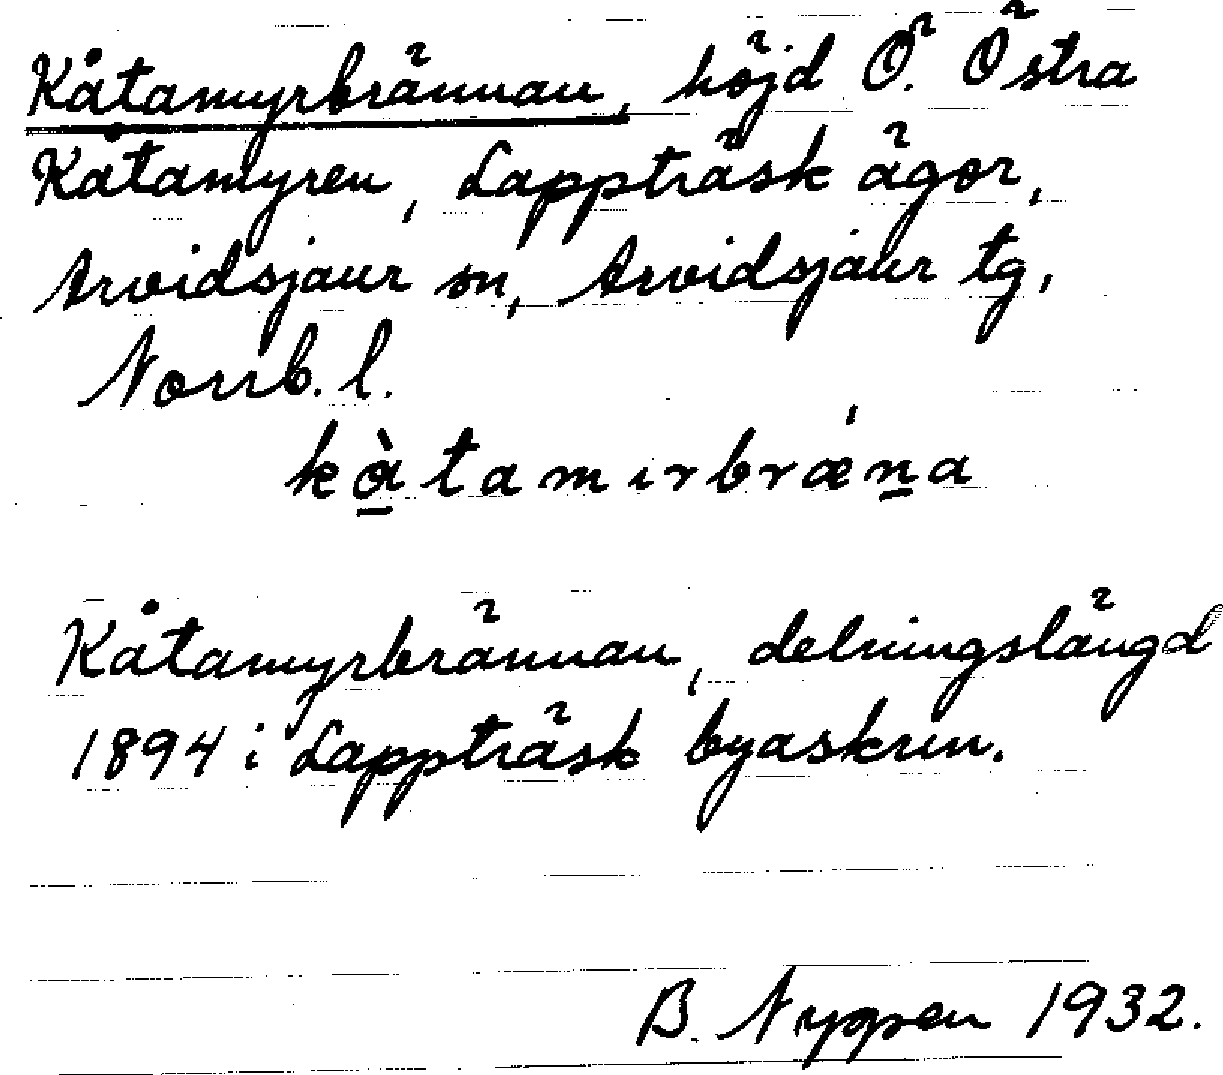 Kåtamyrbrännan, höjd Ö. Östra
Kåtamyren, Lappträsk ägor,
Arvidsjaur sn, Arvidsjaur tg,
Norrb. l.
kàtamırbræ´na
Kåtamyrbrännan, delningslängd
1894 i Lappträsk byaskrin.
B. Nyppen 1932.